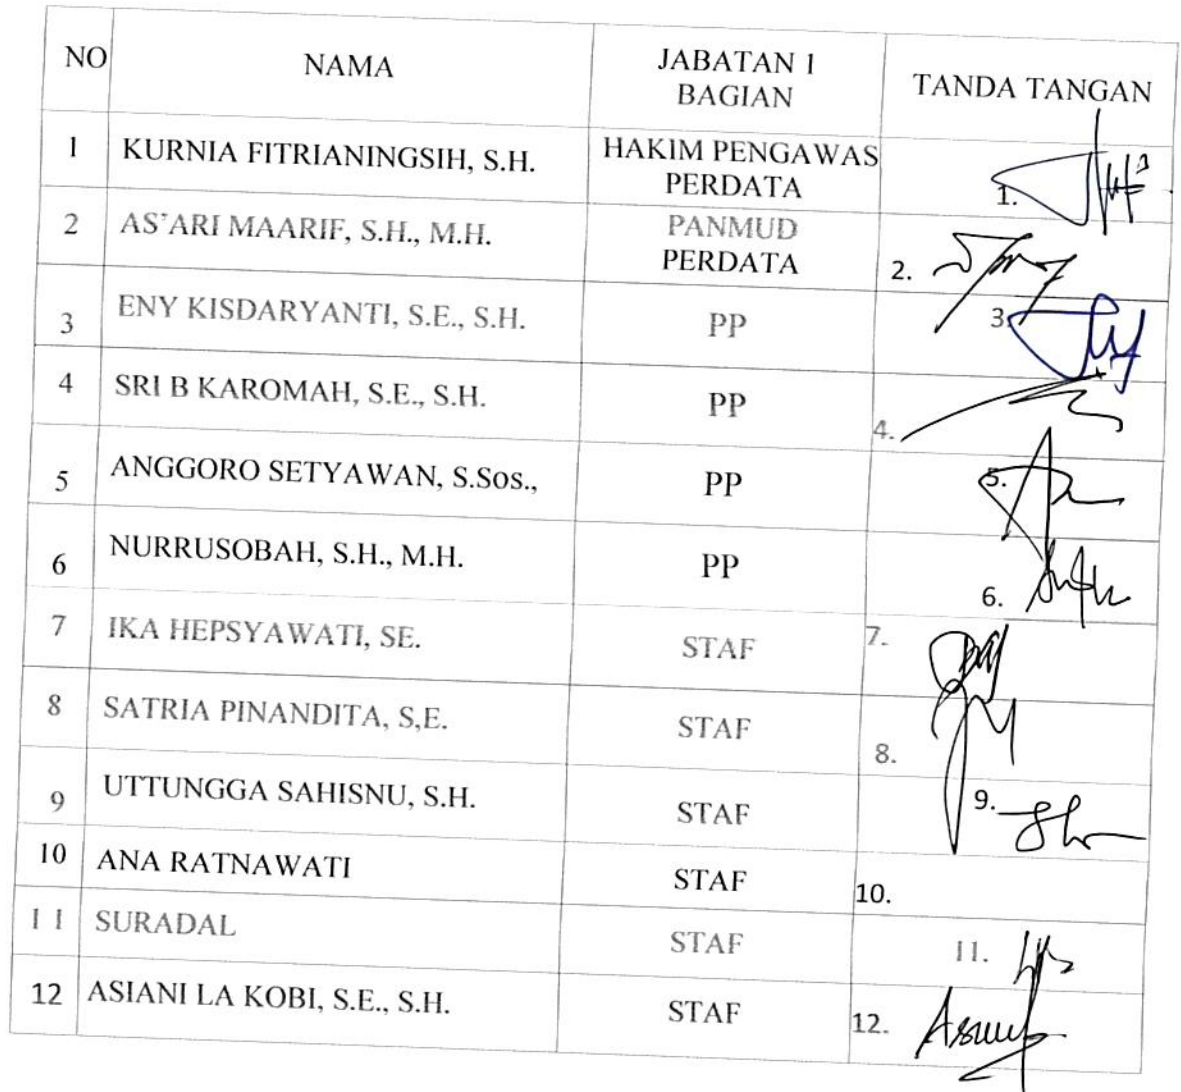 NO NAMA JABATAN 1 BAGIAN TANDA TANGAN
1 KURNIA FITRIANINGSIH, S.H. HAKIM PENGAWAS PERDATA 1.
2 AS'ARI MAARIF, S.H., M.H. PANMUD PERDATA 2.
3 ENY KISDARYANTI, S.E., S.H. PP 3.
4 SRI B KAROMAH, S.E., S.H. PP 4.
5 ANGGORO SETYAWAN, S.Sos., PP 5.
6 NURRUSOBAH, S.H., M.H. PP 6.
7 IKA HEPSYAWATI, SE. STAF 7.
8 SATRIA PINANDITA, S,E. STAF 8.
9 UTTUNGGA SAHISNU, S.H. STAF 9.
10 ANA RATNAWATI STAF 10.
11 SURADAL STAF 11.
12 ASIANI LA KOBI, S.E., S.H. STAF 12.